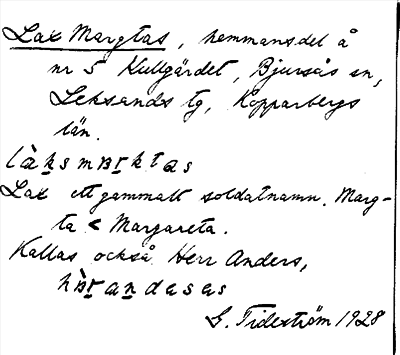 Lax Margtas, hemmansdel å
nr 5 Kullgärdet, Bjursås sn,
Leksands tg, Kopparbergs
län.
làksmarktas
Lax ett gammalt soldatnamn. Marg-
ta < Margareta.
Kallas också Herr Anders,
hæ̀randasas
G. Tideström 1928